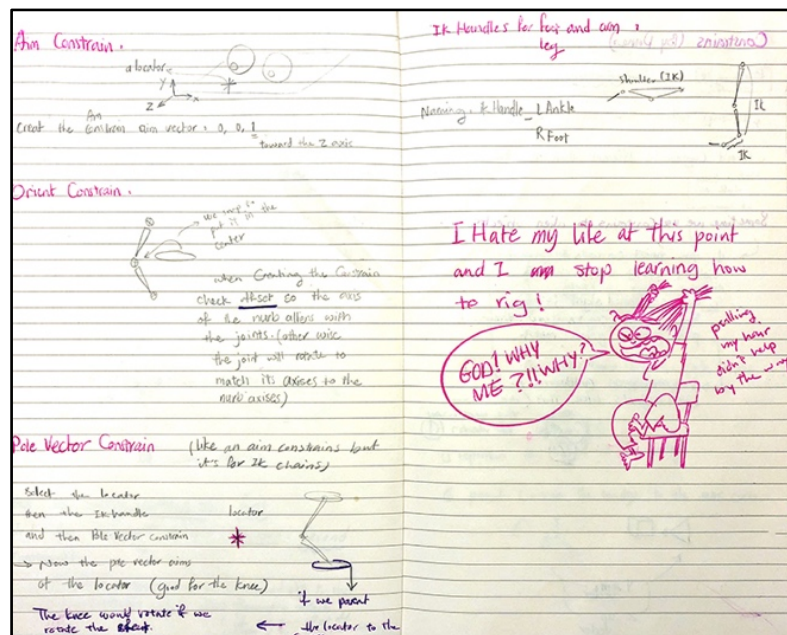 Aim Constrain.
a locator
Y
X
Z
Creat the Aim Constrain aim vector: 0, 0, 1
toward the Z axis
Orient Constrain.
put it in the
center
when Creating the Constrain
check offset so the axis
of the nurb aliens with
the joints. (other wise
the joint will rotate to
match its axises to the
nurb axises)
Pole Vector Constrain
(like an aim constrains but
it's for IK chains)
Select the locator
then the IK handle
and then Pole Vector constrain
locator
→ Now the pole vector aims
at the locator (good for the knee)
if we parent
The knee would rotate if we
rotate the
← the locator to the
IK Handles for foot and arm,
leg
Constrains
shoulder (IK)
Naming: IK Handle_L Ankle
R Foot
IK
IK
I Hate my life at this point
and I stop learning how
to rig!
GOD! WHY
ME?!! WHY?
pulling
my hair
didn't help
by the way